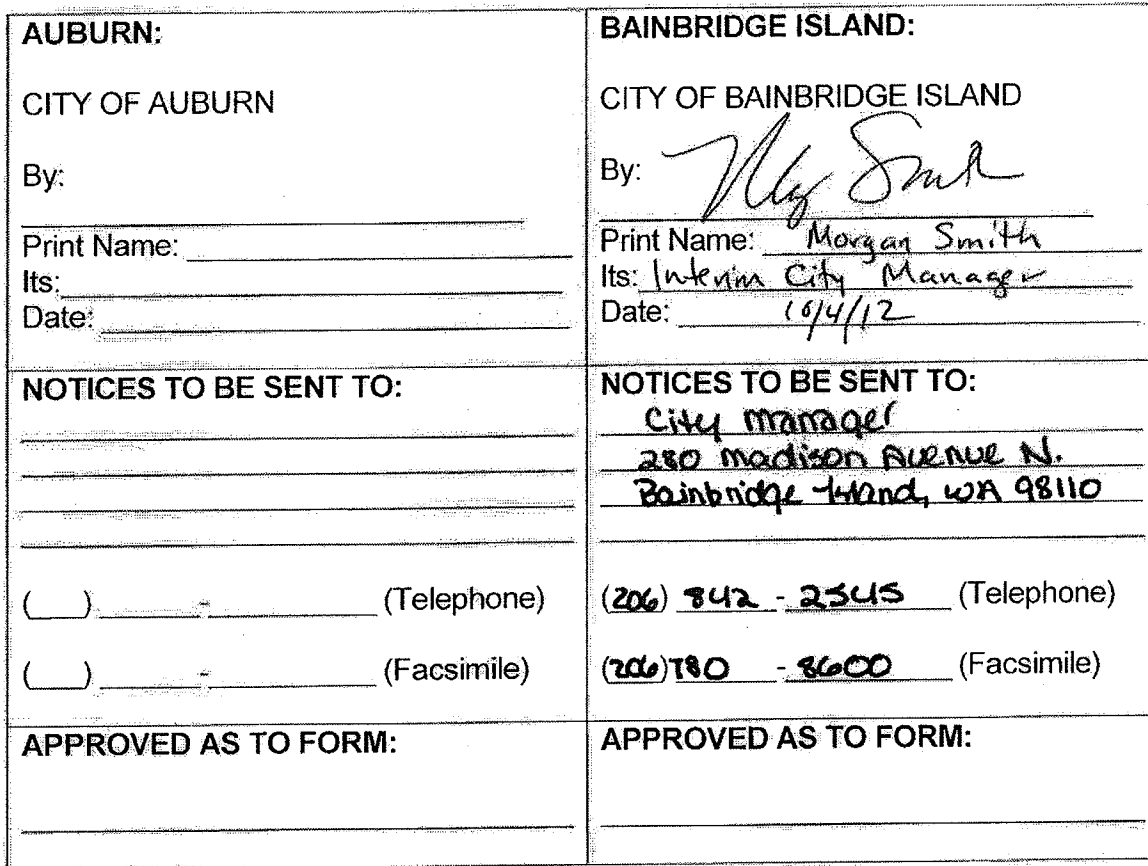 AUBURN:
CITY OF AUBURN
By:
Print Name:
Its:
Date:
NOTICES TO BE SENT TO:
( ) - (Telephone)
( ) - (Facsimile)
APPROVED AS TO FORM:
BAINBRIDGE ISLAND:
CITY OF BAINBRIDGE ISLAND
By:
Print Name: Morgan Smith
Its: Interim City Manager
Date: 10/4/12
NOTICES TO BE SENT TO:
City Manager
280 Madison Avenue N.
Bainbridge Island, WA 98110
(206) 842 - 2545 (Telephone)
(206) 780 - 8600 (Facsimile)
APPROVED AS TO FORM: